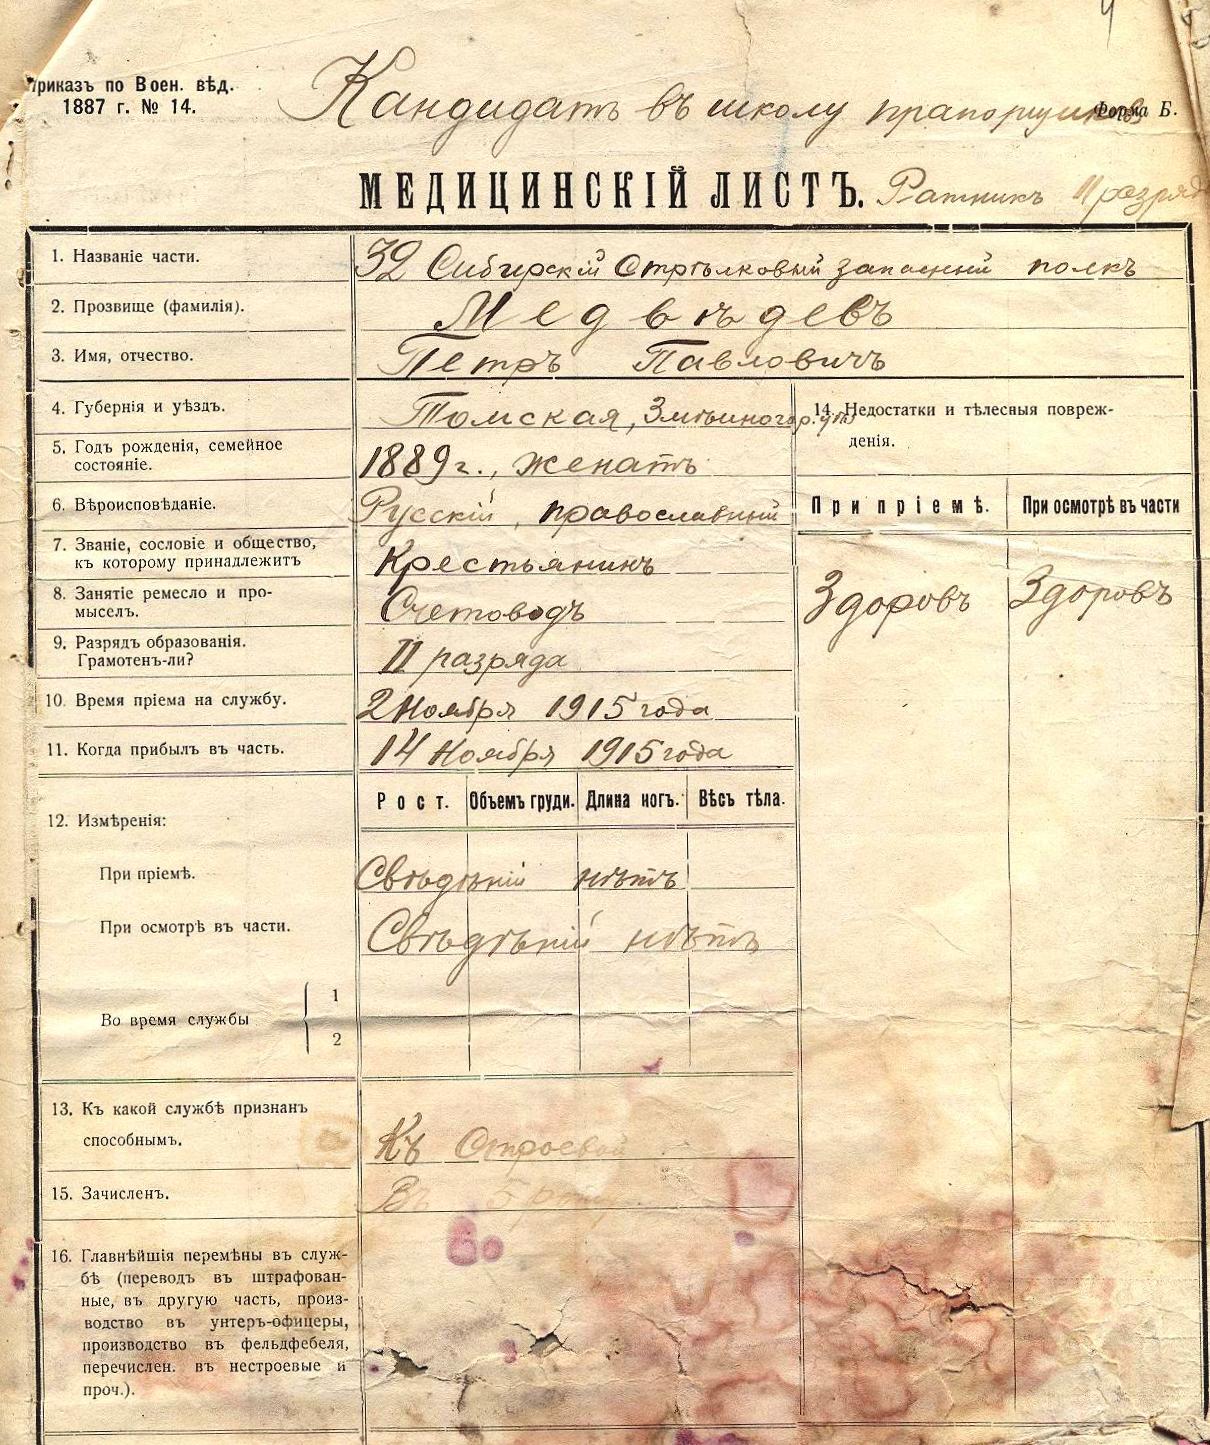 Приказъ по Воен. вѣд.
1887 г. № 14.
Кандидатъ въ школу прапорщиковъ
Форма Б.
МЕДИЦИНСКІЙ ЛИСТЪ.
Ратникъ II разряда
1. Названіе части.
32 Сибирскій Стрѣлковый запасный полкъ
2. Прозвище (фамилія).
Медвѣдевъ
3. Имя, отчество.
Петръ Павловичъ
4. Губернія и уѣздъ.
Томская, Змѣиногор. у.
5. Годъ рожденія, семейное
состояніе.
1889 г., женатъ
6. Вѣроисповѣданіе.
Русскій, православный
7. Званіе, сословіе и общество,
къ которому принадлежитъ
Крестьянинъ
8. Занятіе ремесло и про-
мыселъ.
Счетоводъ
9. Разрядъ образованія.
Грамотенъ-ли?
II разряда
10. Время пріема на службу.
2 Ноября 1915 года
11. Когда прибылъ въ часть.
14 Ноября 1915 года
14. Недостатки и тѣлесныя повреж-
денія.
При пріемѣ.
При осмотрѣ въ части
Здоровъ
Здоровъ
12. Измѣренія:
Рост.
Объемъ груди.
Длина ногъ.
Вѣсъ тѣла.
При пріемѣ.
Свѣдѣній нѣтъ
При осмотрѣ въ части.
Свѣдѣній нѣтъ
Во время службы
1
2
13. Къ какой службѣ признанъ
способнымъ.
Къ Строевой
15. Зачисленъ.
Въ 5 роту
16. Главнѣйшія перемѣны въ служ-
бѣ (переводъ въ штрафован-
ные, въ другую часть, произ-
водство въ унтеръ-офицеры,
производство въ фельдфебеля,
перечислен. въ нестроевые и
проч.).